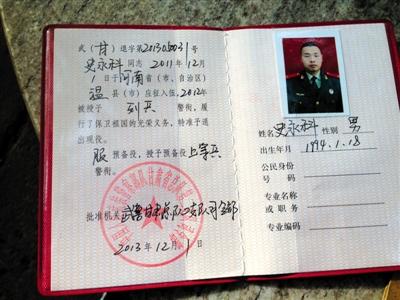 武（甘）退字第20130603号
史永科同志 2011年12月
1日于河南省（市、自治区）
温县（市）应征入伍，2012年
被授予列兵警衔，履
行了保卫祖国的光荣义务，特准予退
出现役。
服预备役，授予预备役上等兵
警衔。
批准机关
2013年12月1日
姓名 史永科 性别 男
出生年月 1994.1.18
公民身份
号码
专业名称
或职务
专业编码